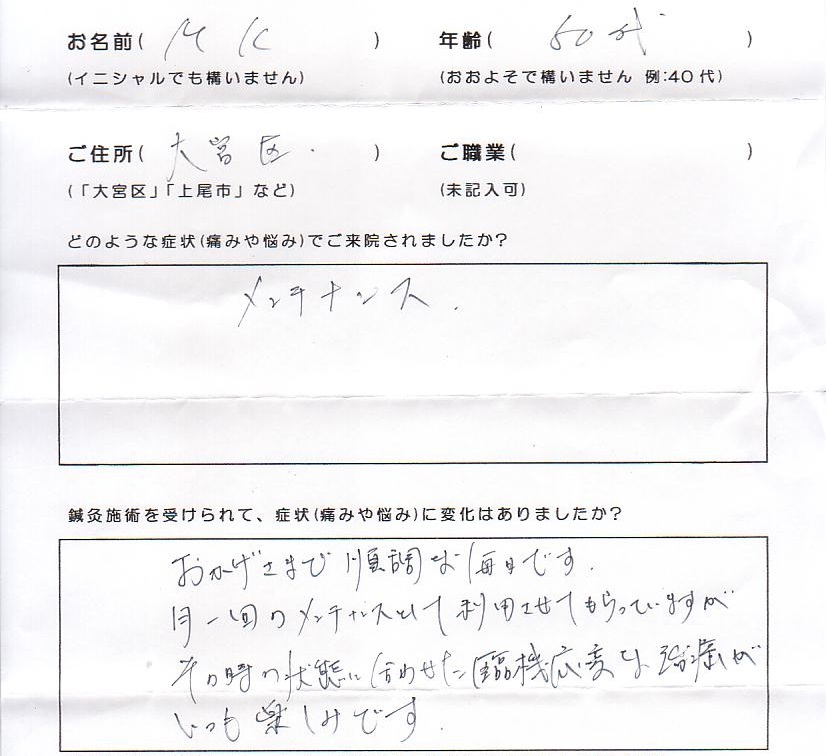 お名前( M K ) 年齢( 50代 )
(イニシャルでも構いません) (おおよそで構いません 例:40代)
ご住所( 大宮区. ) ご職業( )
(「大宮区」「上尾市」など) (未記入可)
どのような症状(痛みや悩み)でご来院されましたか?
メンテナンス.
鍼灸施術を受けられて、症状(痛みや悩み)に変化はありましたか?
おかげさまで順調な毎日です.
月一回のメンテナンスとして利用させてもらっていますが
その時の状態に合わせた臨機応変な治療が
いつも楽しみです.